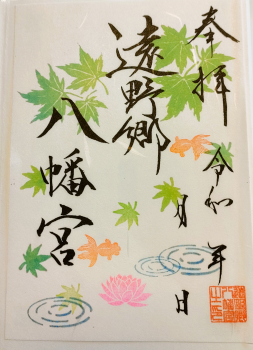 奉拝
令和 年
月 日
遠野郷
八幡宮